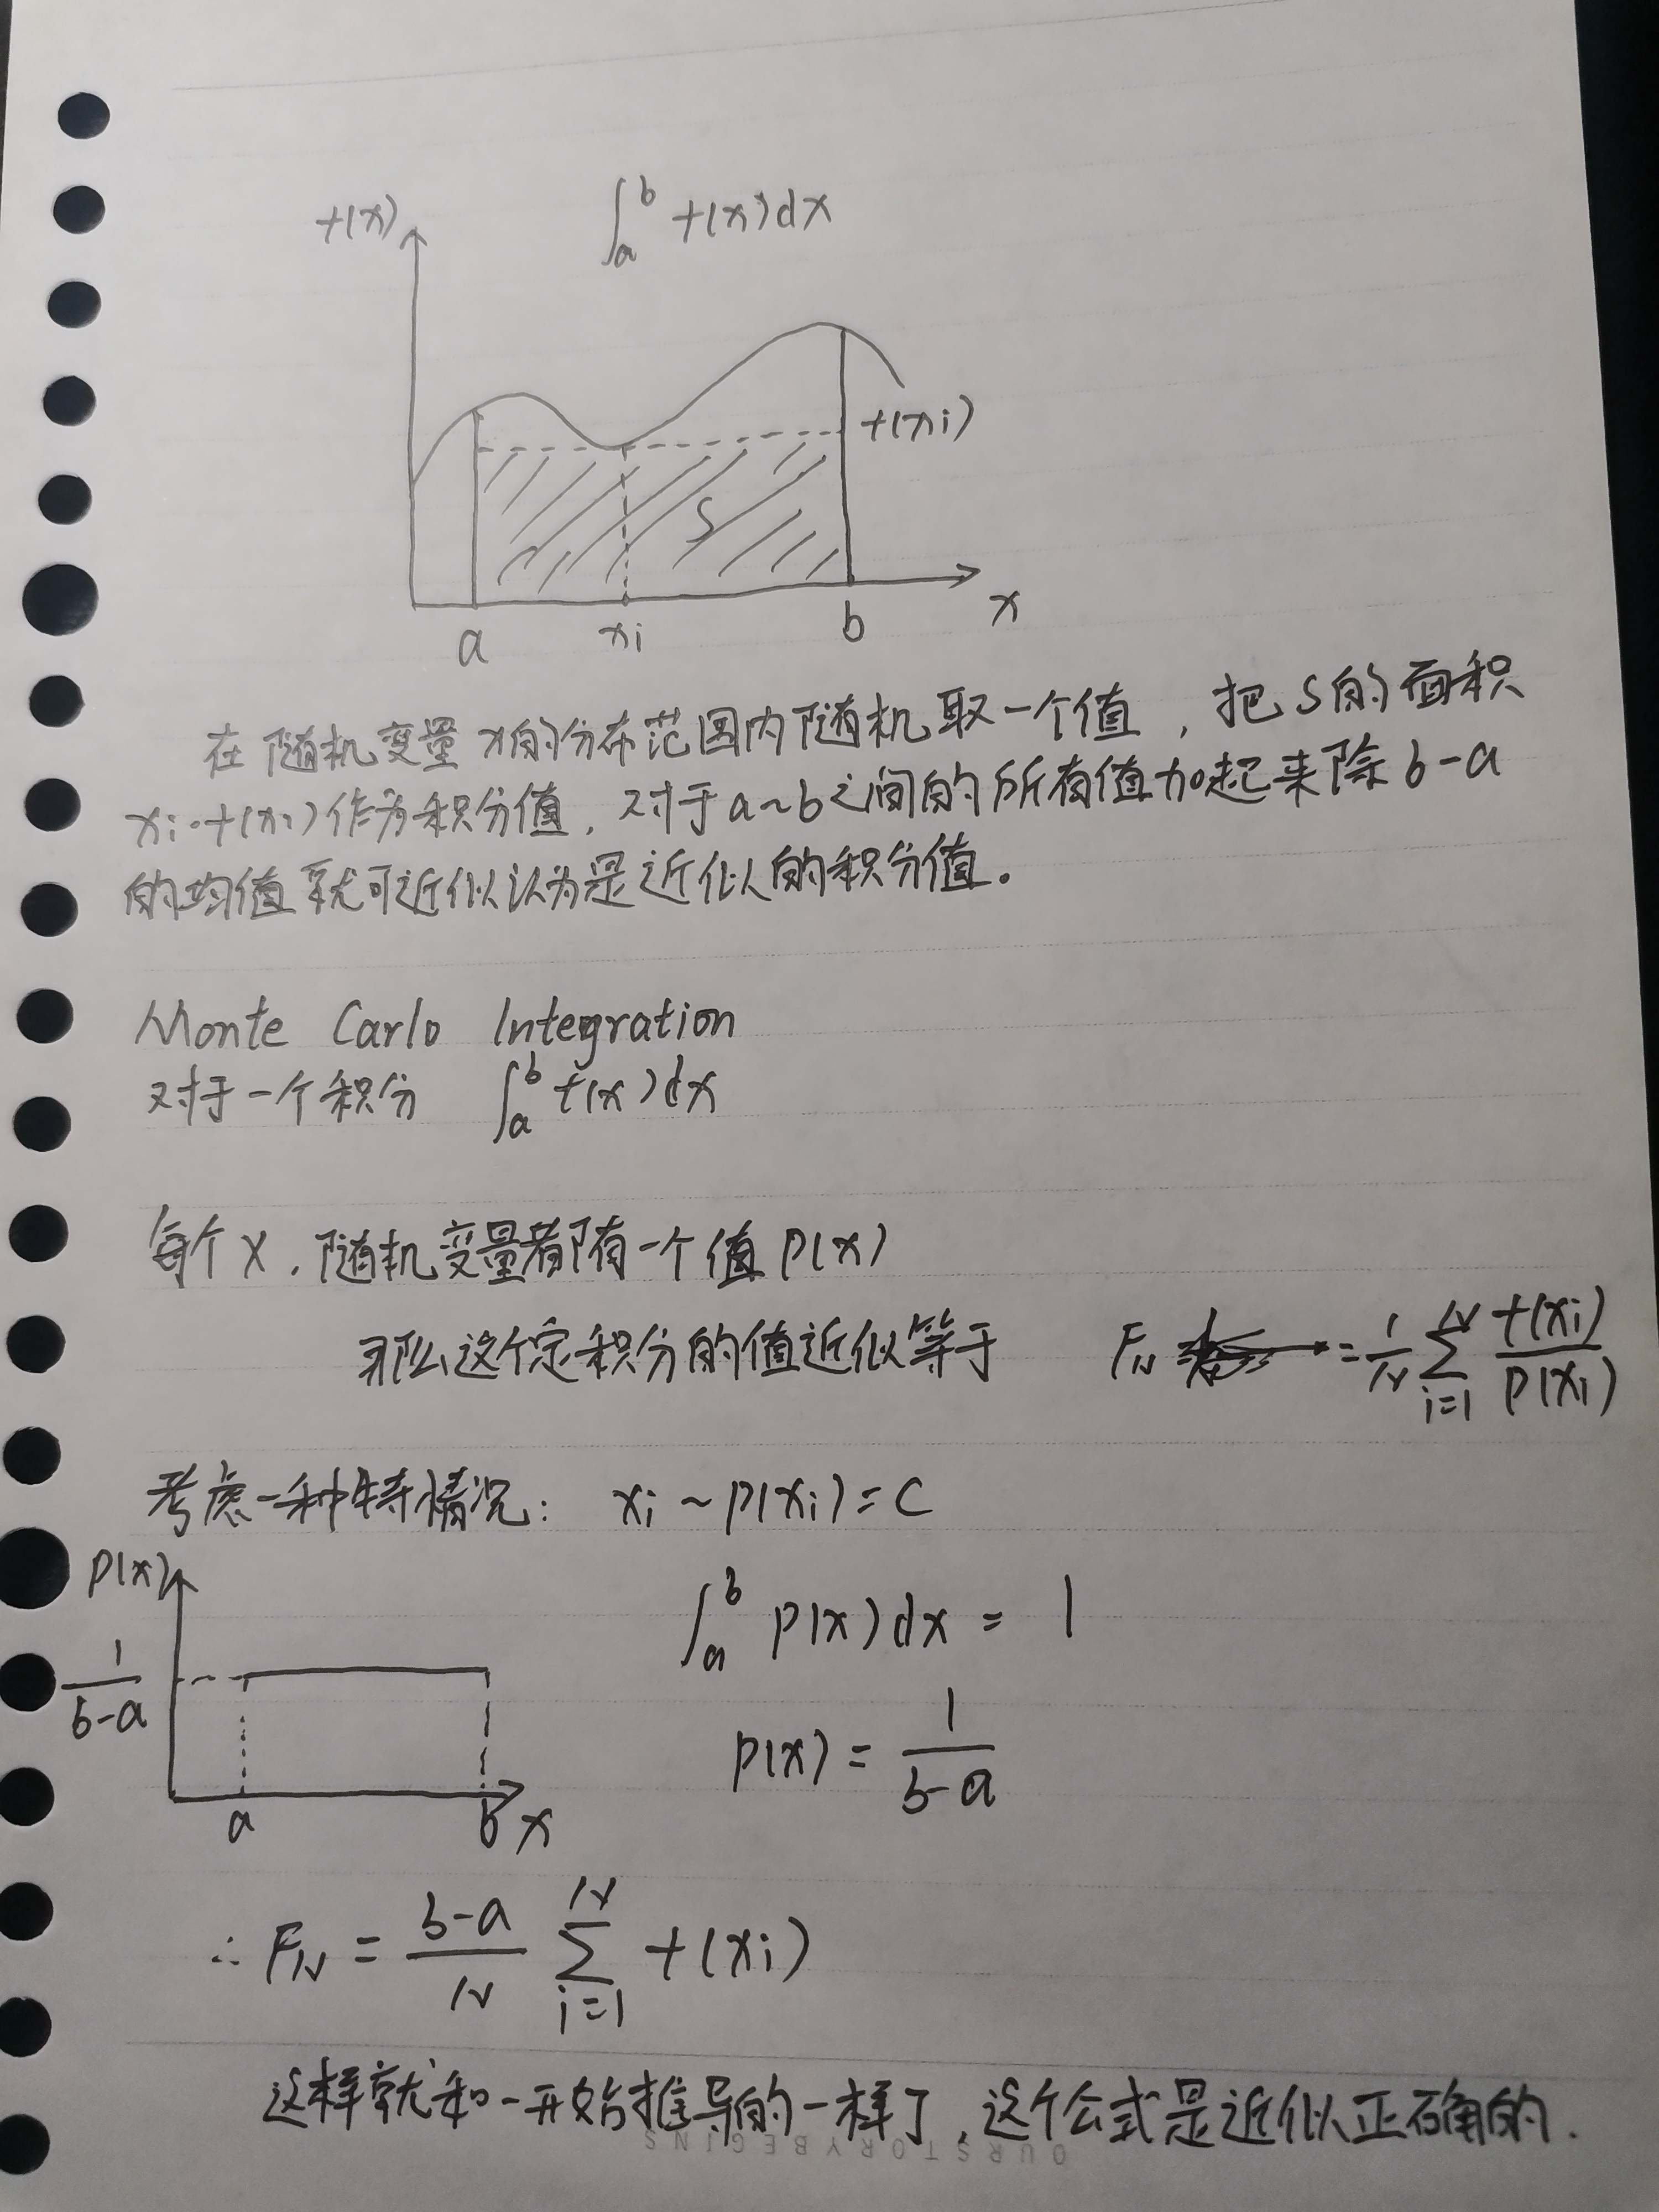 f(x)
∫_a^b f(x)dx
f(xi)
S
a xi b x
在随机变量x的分布范围内随机取一个值，把S的面积
xi·f(xi)作为积分值，对于a~b之间的所有值加起来除b-a
的均值就可近似认为是近似的积分值。
Monte Carlo Integration
对于一个积分 ∫_a^b f(x)dx
每个X，随机变量都有一个值P(x)
那么这个定积分的值近似等于 F_N = 1/N ∑_{i=1}^N f(xi)/P(xi)
考虑一种特情况： xi ~ P(xi) = C
P(x)
∫_a^b P(x)dx = 1
1/(b-a)
P(x) = 1/(b-a)
a b x
∴ F_N = (b-a)/N ∑_{i=1}^N f(xi)
这样就和一开始推导的一样了，这个公式是近似正确的.
OURSTORYBEGINS